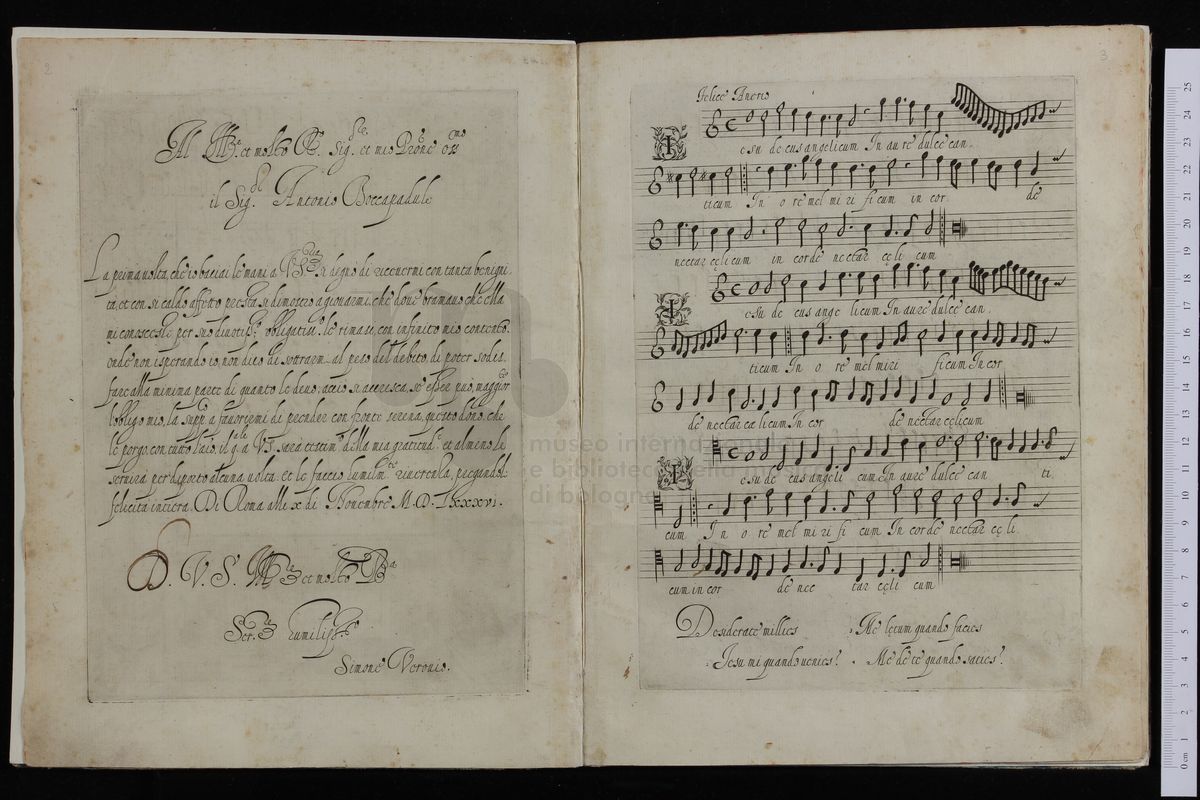 2
Al Ill.re et molto R.do Sig.re et mio P̃rone oss.mo
il Sig.or Antonio Boccapadule
La prima uolta, che io baciai le mani a V.S. si degno di riceuermi con tanta benigni
ta, et con si caldo affetto presta si dimostro a giouarmi, che doue bramauo che ella
mi conoscesse per suo diuotiss.o obligatiss.o le rimasi, con infinito mio contento.
onde non isperando io, non dico di sottrarm.. al peso del debito, di poter sodis
fare alla minima parte di quanto le deuo; accio si accresca, se esser puo, maggior
l'obligo mio, la supp.o a fauorirmi di prender con fronte serena, questo dono, che
le porgo con tutto
seruira per diporto alcuna uolta. et le faccio humilm.te riuerenza, pregandole
felicita intiera. Di Roma alli x di Nouembre M.D.LXXXVI.
D. V. S. Ill.re et molto R.da
Ser.re humiliss.o
Simone Verouio.
3
Felice Anerio
Iesu decus angelicum In aure dulce can.
ticum In ore mel mirificum in cor de
nectar cęlicum in corde nectar cęli cum
Iesu decus angelicum In aure dulce can.
ticum In ore mel miri ficum In cor
de nectar cælicum In cor de nectar cęlicum
Iesu decus angeli cum In aure dulce can ti
cum In ore mel mirifi cum In corde nectar cęli
cum in cor de nec tar cęli cum
Desiderate millies Me lętum quando facies
Iesu mi quando uenies? Me de te quando saties?
museo internazionale
e biblioteca della musica
di bologna
0 cm 1 2 3 4 5 6 7 8 9 10 11 12 13 14 15 16 17 18 19 20 21 22 23 24 25